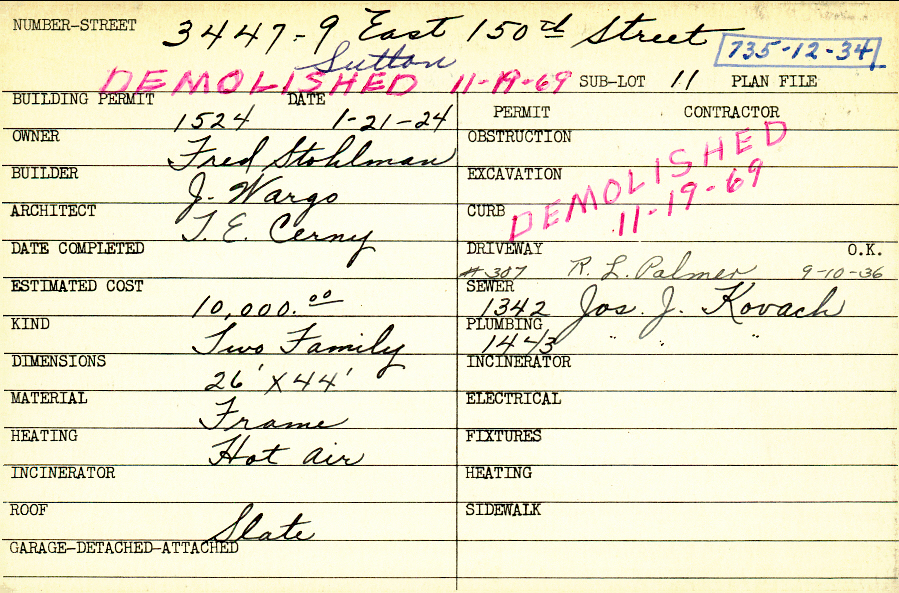 NUMBER-STREET 3447-9 East 150th Street
Sutton 735-12-34
DEMOLISHED 11-19-69 SUB-LOT 11 PLAN FILE
BUILDING PERMIT DATE
1524 1-21-24
OWNER
Fred Stohlman
BUILDER
J. Wargo
ARCHITECT
T. E. Cerny
DATE COMPLETED
ESTIMATED COST
10,000.00
KIND
Two Family
DIMENSIONS
26' X 44'
MATERIAL
Frame
HEATING
Hot air
INCINERATOR
ROOF
Slate
GARAGE-DETACHED-ATTACHED
PERMIT CONTRACTOR
OBSTRUCTION
EXCAVATION
DEMOLISHED
11-19-69
CURB
DRIVEWAY O.K.
#307 R. L. Palmer 9-10-36
SEWER
1342 Jos. J. Kovach
PLUMBING
1443 " " "
INCINERATOR
ELECTRICAL
FIXTURES
HEATING
SIDEWALK